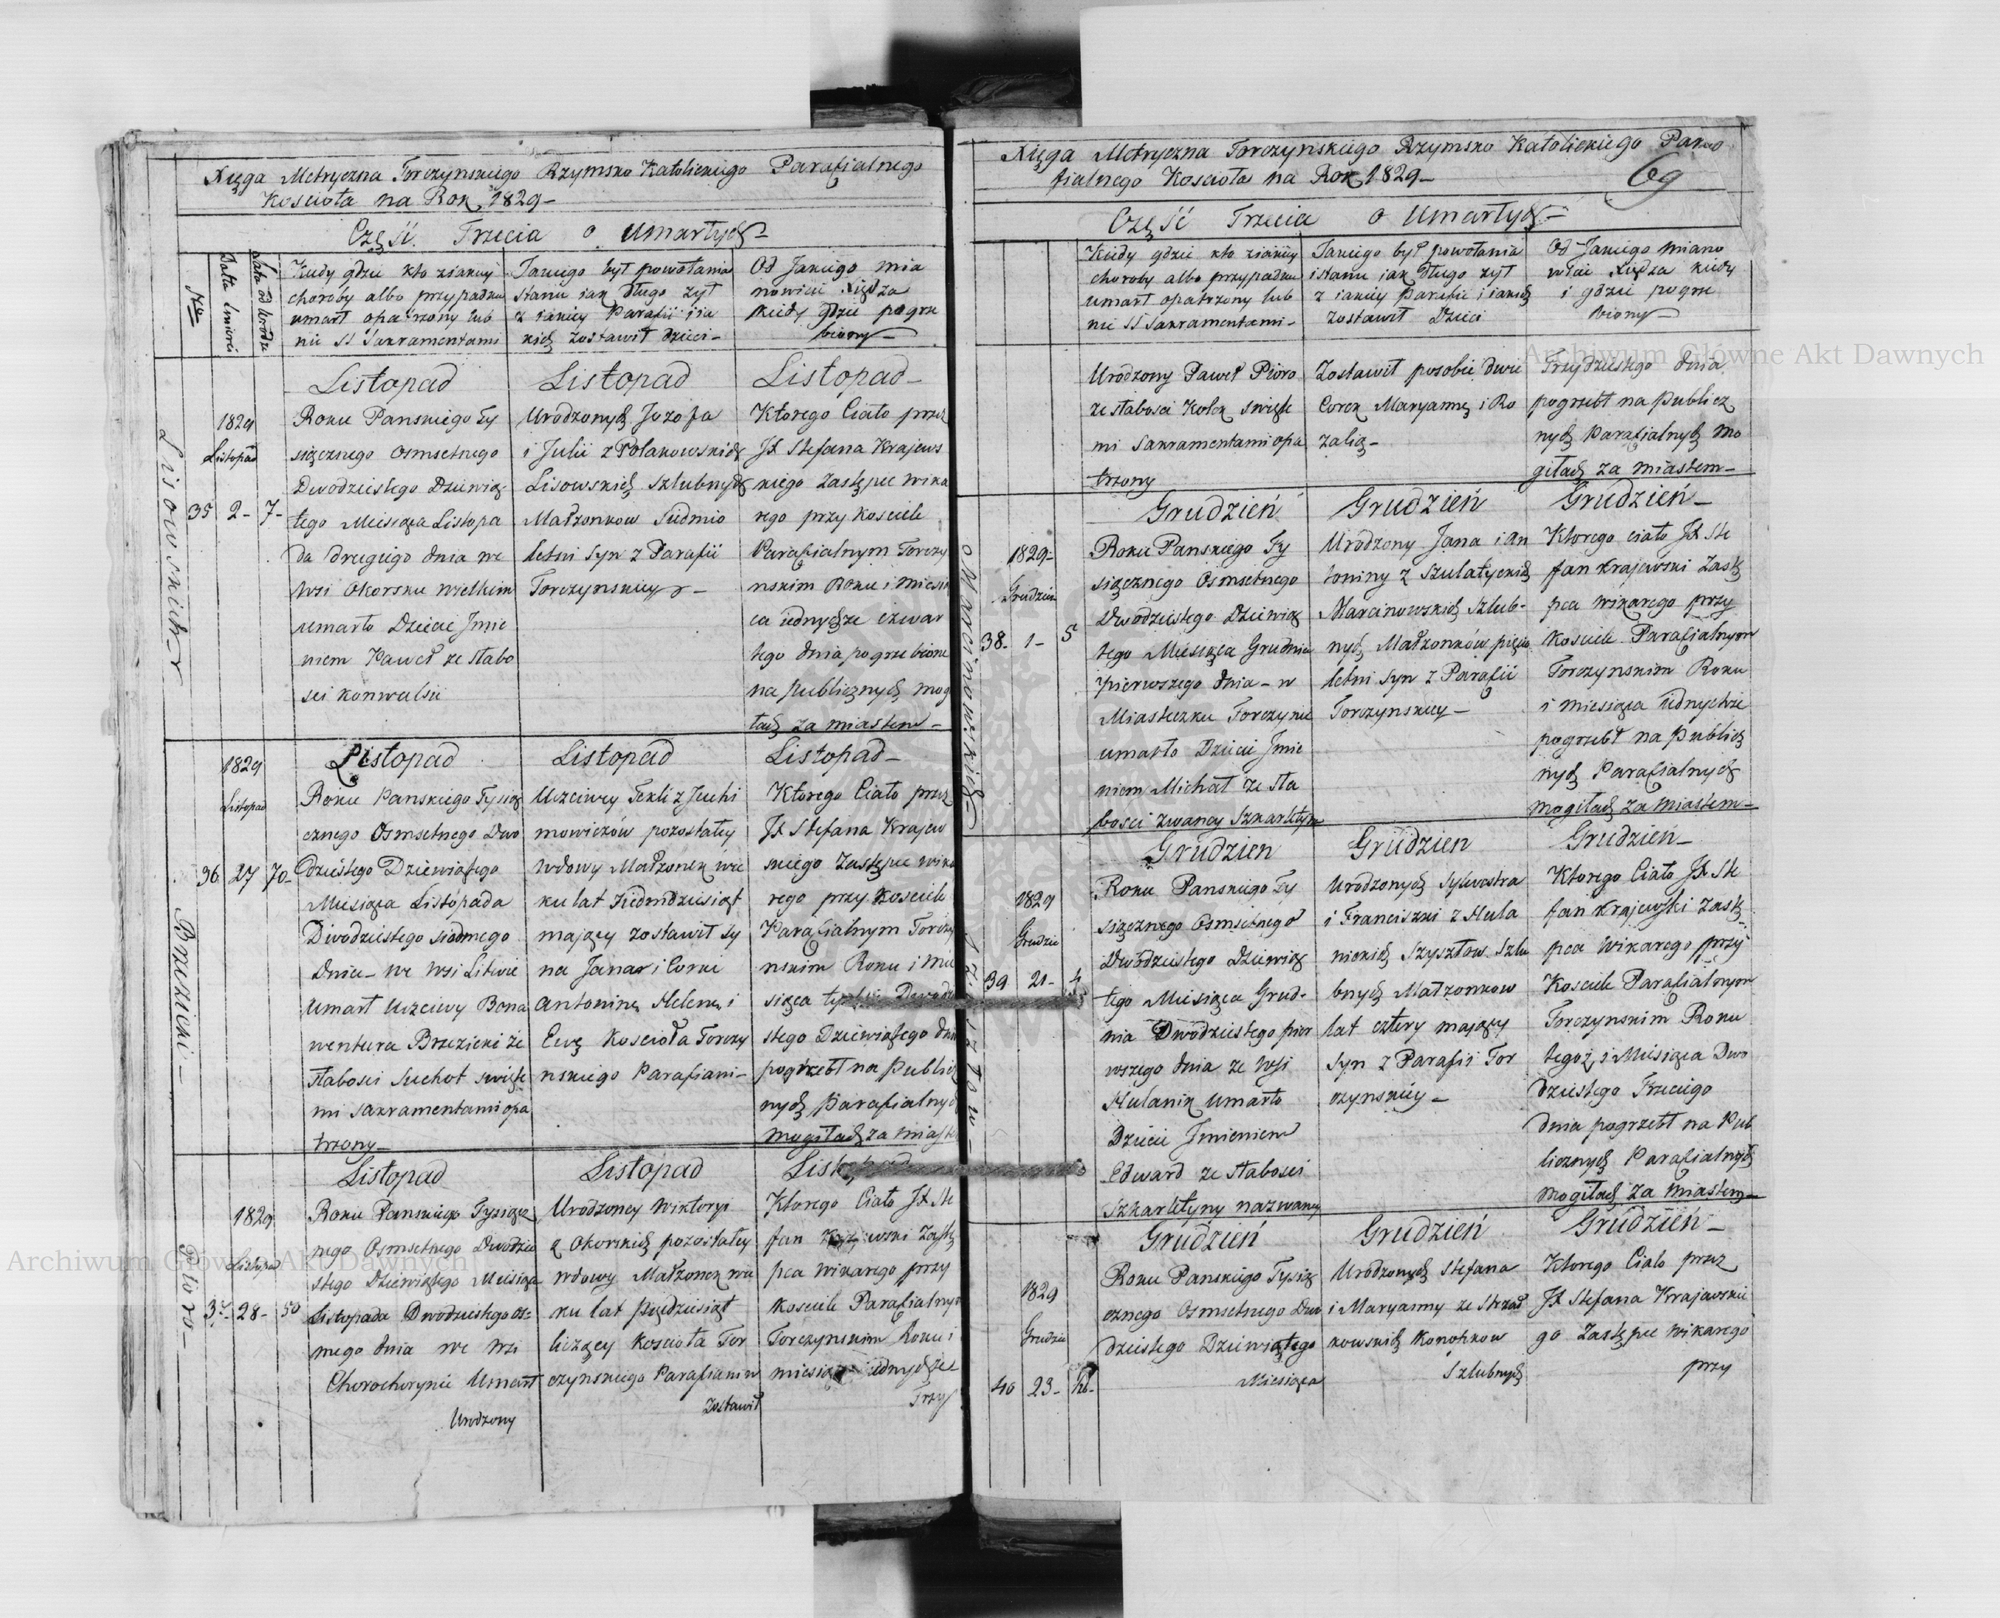 Księga Metryczna Torczynskiego Rzymsko Katolickiego Parafialnego
Koscioła na Rok 1829 –
Część Trzecia o Umarłych –
No
Datta Smierci
Lata od Urodz
Kiedy gdzie kto z iakiey
choroby albo przypadku
umarł opatrzony lub
nie SS Sakramentami
Jakiego był powołania
stanu iak długo żył
z iakiey Parafii i ia
kich zostawił dzieci –
Od Jakiego mia
nowicie Xiędza
kiedy gdzie pogrze
biony –
Lisowskich
35
1829
Listopad
2 –
7 –
Listopad
Roku Panskiego Ty
siącznego Osmsetnego
Dwódziestego Dziewią
tego Miesiąca Listopa
da drugiego dnia we
Wsi Okorsku wielkim
umarło Dziecie Jmie
niem Paweł ze słabo
sci konwulsii
Listopad
Urodzonych Jozefa
i Julii z Polakowskich
Lisowskich Szlubnych
Małżonkow Siedmio
letni Syn z Parafii
Torczynskiey –
Listopad –
Ktorego Ciało przez
JX Stefana Krajews
kiego Zastępce Wika
rego przy Kosciele
Parafialnym Torczy
nskim Roku i Miesią
ca iednychże czwar
tego dnia pogrzebione
na Publicznych mog
łach za miastem –
Brzezicki –
36
1829
Listopad
27
70 –
Listopad
Roku Panskiego Tysiąc
cznego Osmsetnego Dwo
dziestego Dziewiątego
Miesiąca Listópada
Dwodziestego siodmego
Dnia – we Wsi Litwie
Umarł Uczciwy Bona
wentura Brzezicki ze
słabosci Suchot swięte
mi sakramentami opa
trzony –
Listopad
Uczciwey Tekli z Juchi
mowiczów pozostałey
wdowy Małzonek wie
ku lat siedmdziesiąt
maiący zostawił sy
na Jana i Corki
Antoninę Helenę i
Ewę Kosciola Torczy
nskiego Parafiani –
Listopad –
Ktorego Ciało przez
JX Stefana Krajew
skiego Zastępce wika
rego przy Kosciele
Parafialnym Torczy
nskim Roku i Mie
siąca Dwodzie
stego Dziewiątego dnia
pogrzebł na Public
nych Parafialnych
mogiłach za miast
Pioro –
37 –
1829
Listopa
28 –
50
Listopad
Roku Panskiego Tysiącz
nego Osmsetnego Dwodzie
stego Dziewiątego Miesiąca
Listopada Dwodziestego os
mego dnia we Wsi
Chorochorynie Umarł
Urodzony
Listopad
Urodzoney Wiktoryi
z Okorskich pozostałey
wdowy Małzonek wie
ku lat Pięcdziesiąt
liczący Kosciola Tor
czynskiego Parafianin
Zostawił
Ktorego Ciało JX Ste
fan Zastę
pca wikarego przy
Kosciele Parafialnym
Torczynskim Roku i
miesiąca iednychże
Trzy
Księga Metryczna Torczynskiego Rzymsko Katolickiego Para
fialnego Kosciola na Rok 1829 –
69
Część Trzecia o Umarłych –
Kiedy gdzie kto z iakiey
choroby albo przypadku
umarł opatrzony lub
nie SS Sakramentami –
Jakiego był powołania
i stanu iak długo zył
z iakiey Parafii i iakich
zostawił Dzieci
Od Jakiego miano
wicie Xiędza kiedy
i gdzie pogrze
biony –
Urodzony Paweł Pioro
ze słabosci Kolek święte
mi Sakramentami opa
trzony
Zostawił posobie dwie
Corek Maryannę i Ro
zalią –
Trzydziestego dnia
pogrzebł na Publicz
nych Parafialnych mo
giłach za miastem –
o Marcinowskich –
38 –
1829 –
Grudzien
1 –
5
Grudzień
Roku Panskiego Ty
siącznego Osmsetnego
Dwodziestego Dziewią
tego Miesiąca Grudnia
pierwszego dnia – w
Miasteczku Torczynie
umarło Dziecie Jmie
niem Michał ze sła
bosci zwaney Szkarlatyn
Grudzień
Urodzony Jana i An
toniny z Szulatyckich
Marcinowskich Szlub-
nych Małzonków pięcio
letni Syn z Parafii
Torczynskiey –
Grudzień –
Ktorego ciało JX Ste
fan Krajewski Zastę
pca Wikarego przy
Kosciele Parafialnym
Torczynskim Roku
i miesiąca iednychże
pogrzebł na Publicz
nych Parafialnych
mogiłach za miastem –
39
1829
Grudzie
21 –
4
Grudzien
Roku Panskiego Ty
siącznego Osmsetnego
Dwódziestego Dziewią
tego Miesiąca Grud-
nia Dwodziestego pier
wszego dnia ze wsi
Hulanik umarło
Dziecie Jmieniem
Edward ze słabosci
szkarletyny nazwany
Grudzien
Urodzonych Sylwestra
i Franciszki z Hula
nickich Szyszłow Szlu
bnych Małzonkow
lat cztery maiący
Syn z Parafii Tor
czynskiey –
Grudzień –
Ktorego Ciało JX Ste
fan Krajewski Zastę
pca Wikarego przy
Kosciele Parafialnym
Torczynskim Roku
tegoż i Miesiąca Dwo
dziestego Trzeciego
dnia pogrzebł na Pub
licznych Parafialnych
mogiłach za miastem –
40
1829
Grudzie
23 –
Grudzień
Roku Panskiego Tysią
cznego Osmsetnego Dwo
dziestego Dziewiątego
Miesiąca
Grudzień
Urodzonych Stefana
i Maryanny ze Strzał
kowskich Konotkow
Szlubnych
Grudzień –
Ktorego Ciało przez
JX Stefana Krajewskie
go Zastępce Wikarego
przy
Archiwum Główne Akt Dawnych
Archiwum Główne Akt Dawnych